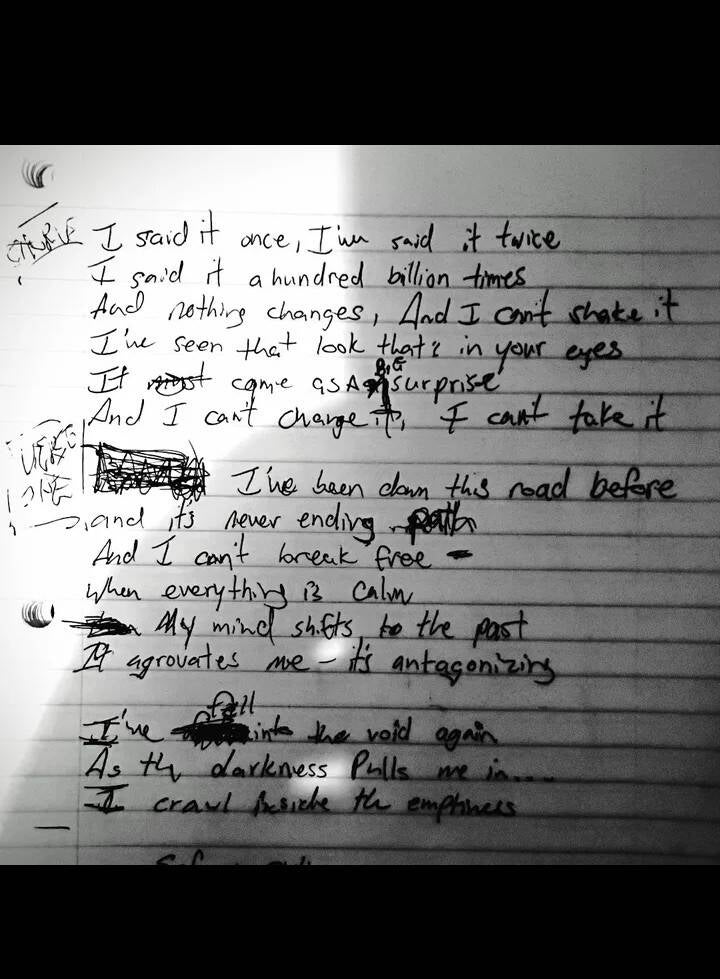 I said it once, I'm said it twice
I said it a hundred billion times
And nothing changes, And I can't shake it
I've seen that look that's in your eyes
It came as A BIG surprise
And I can't change it, I can't take it
VERSE
I've been down this road before
and it's never ending path
And I can't break free -
When everything is calm
My mind shifts to the past
It agrovates me - it's antagonizing
I've fell into the void again
As the darkness Pulls me in....
I crawl inside the emptiness